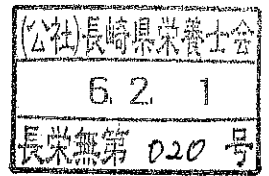 (公社)長崎県栄養士会
6. 2. 1
長栄無第 020 号